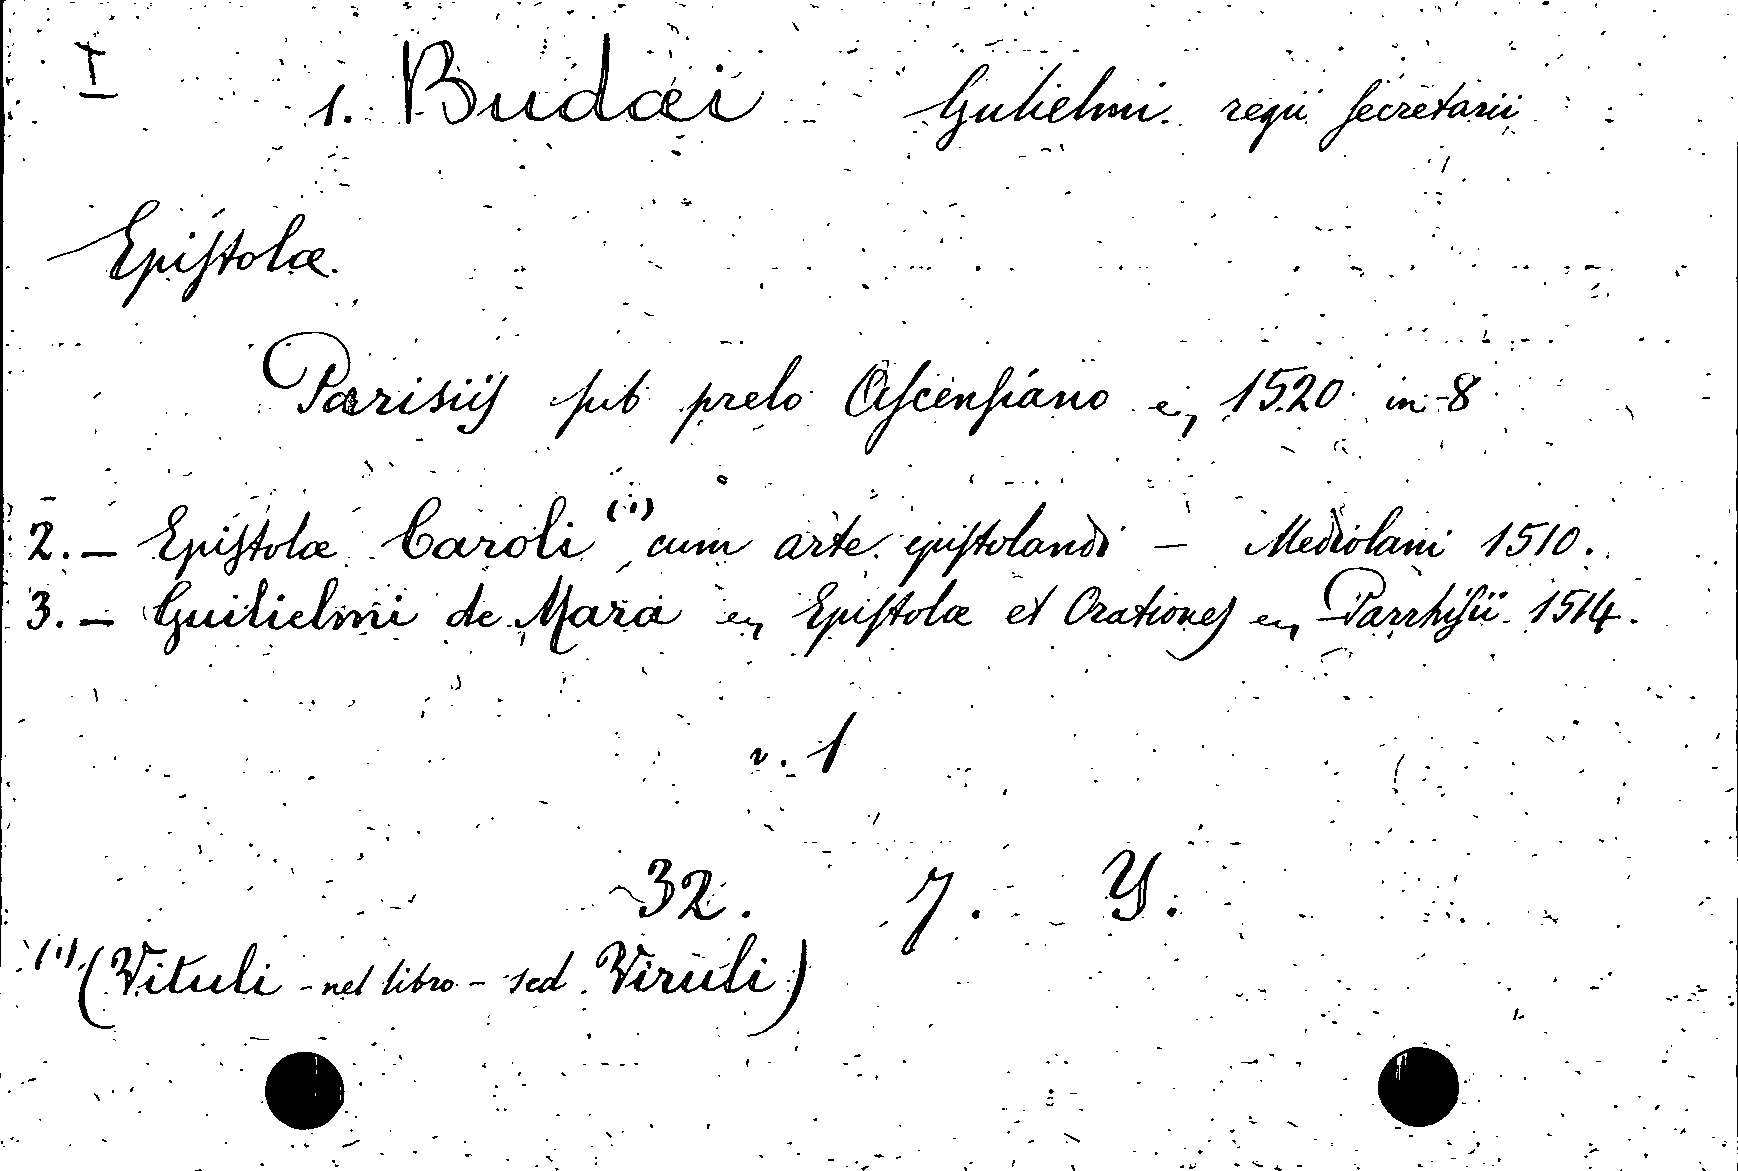 I 1. Budæi Gulielmi. regii secretarii
Epistolæ.
Parisiis sub prelo Ascensiano 1520 in-8
2. — Epistolæ Caroli (1) cum arte epistolandi — Mediolani 1510.
3. — Guilielmi de Mara Epistolæ et Orationes Parrhisii 1514.
v. 1
32. 7. Y.
(1) (Vituli - nel libro - sed Viruli)